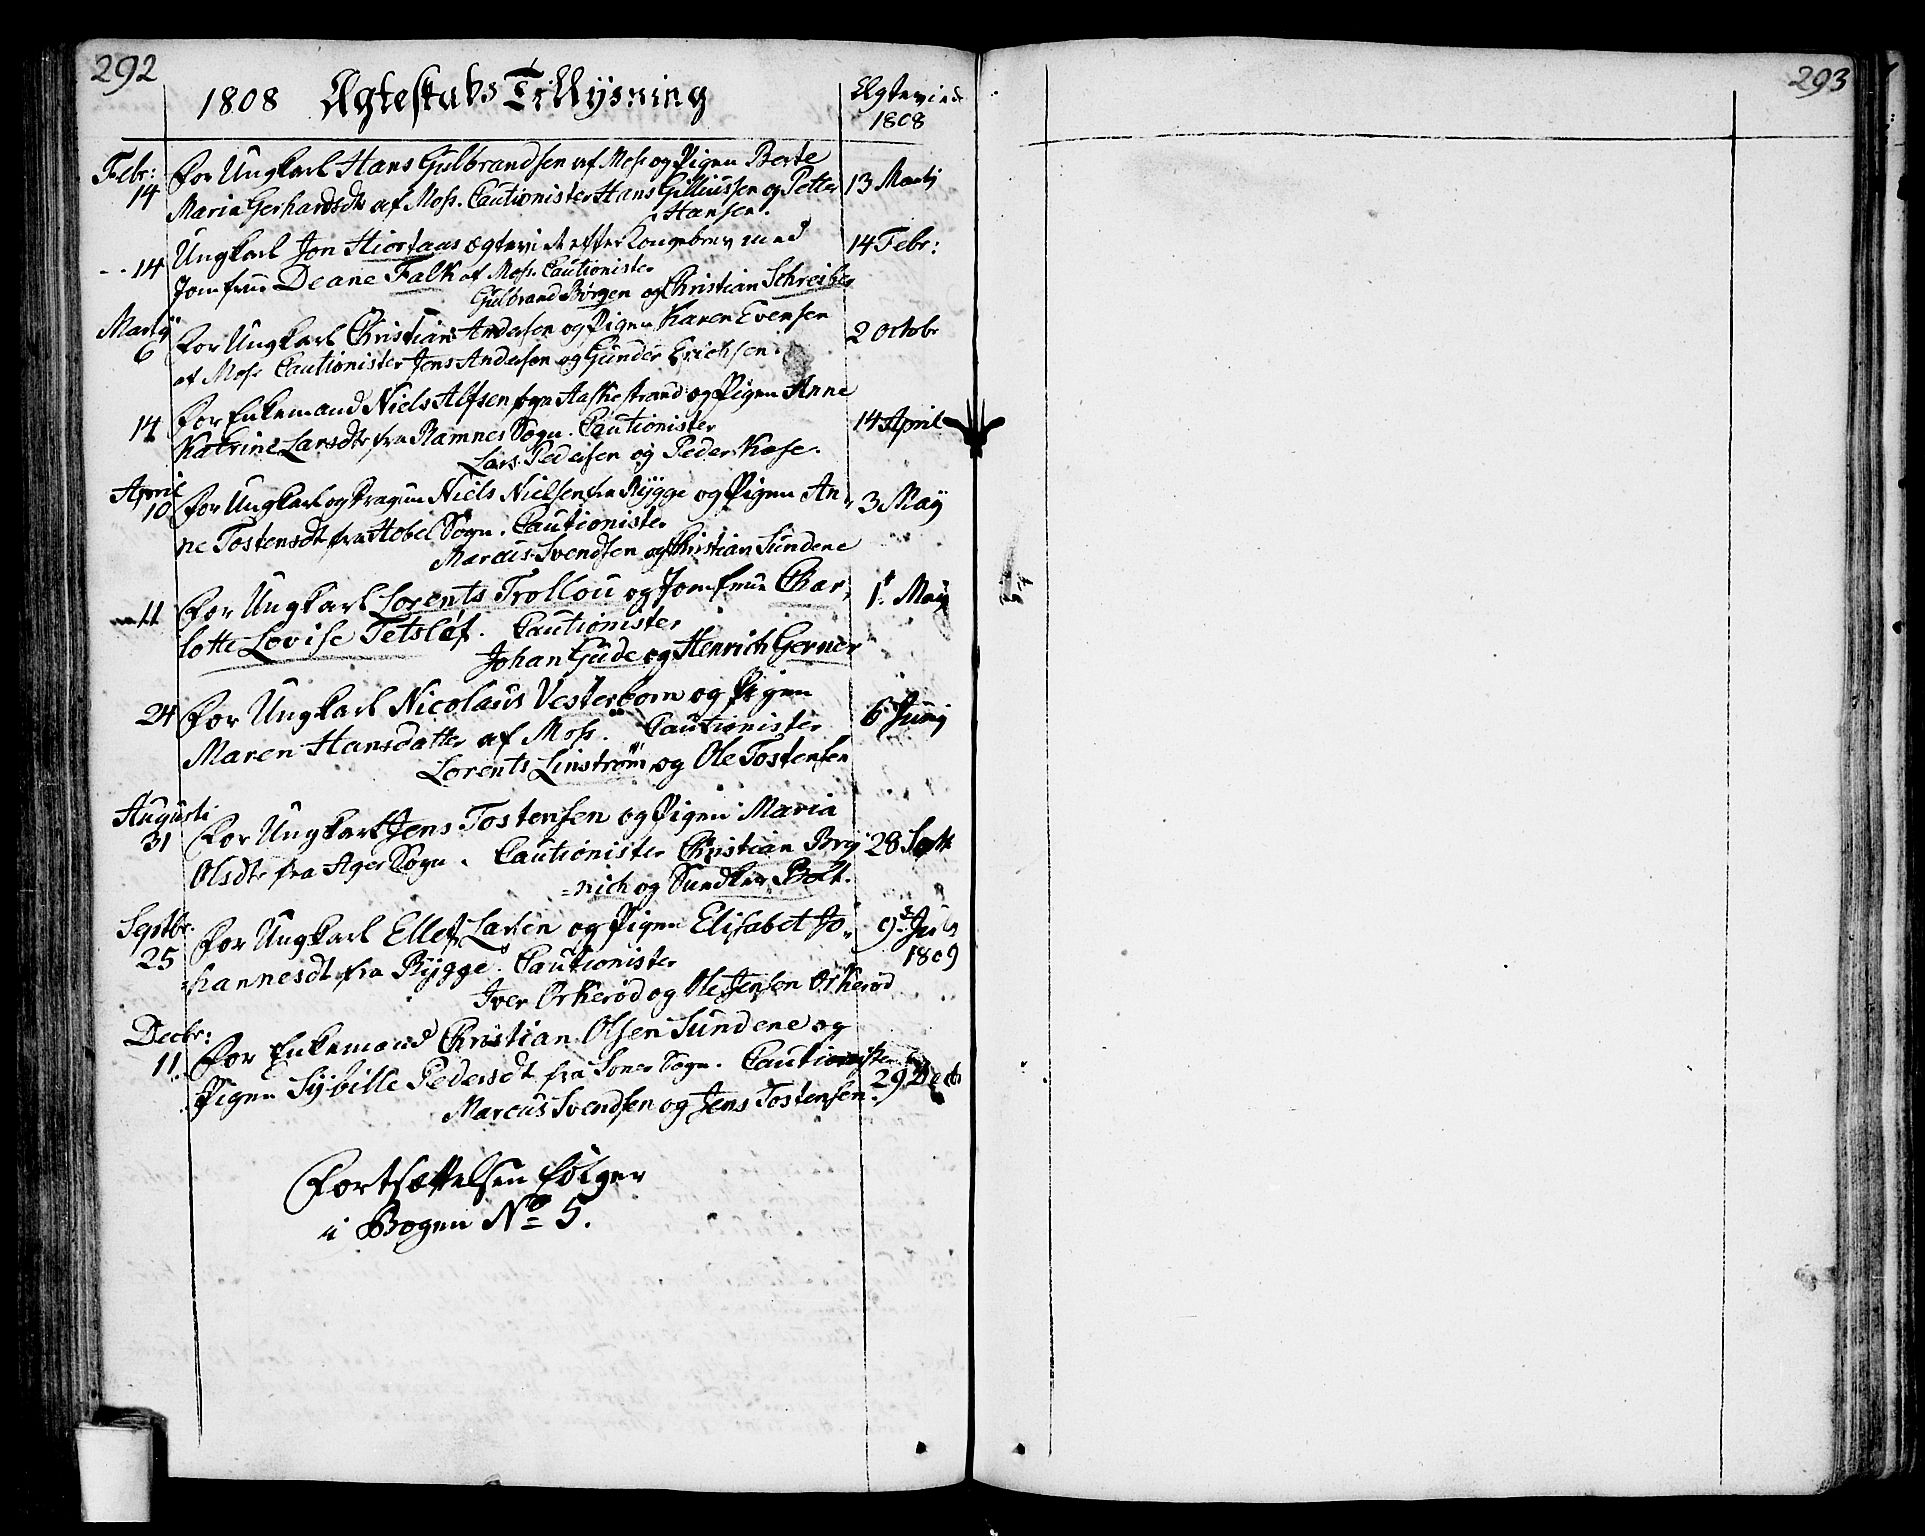 292
1808 Ægteskabs Tillysning
Ægtevied
1808
Febr: For Ungkarl Hans Gulbrandsen af Moss og Pigen Berte
14 Maria Gerhardsdtr af Moss. Cautionister Hans Gilliussen og Petter 13 Martij
Hansen.
14 Ungkarl Jon Hiortaas ægteviet efter Kongebrev med 14 Febr:
Jomfrue Deane Falk af Moss. Cautionister
Gulbrand Børgen og Christian Schreiber
Martij For Ungkarl Christian Andersen og Pigen Karen Evensen 2 Octobr
6 af Moss Cautionister Jens Andersen og Gunder Erichsen.
14 For Enkemand Niels Alfsen fra Aaskestrand og Pigen Anne 14 April
Katrine Larsdtr fra Ramnes Sogn. Cautionister
Lars Pedersen og Peder Kase.
April For Ungkarl og Dragun Niels Nielsen fra Rygge og Pigen An- 3 Maÿ
10 ne Tostensdtr fra Hobel Sogn. Cautionister
Marcus Svendsen og Christian Sundene
11 For Ungkarl Lorents Trollou og Jomfrue Char- 1. Maÿ
lotte Lovise Tetsløf. Cautionister
Johan Gude og Henrich Gerner
24 For Ungkarl Nicolaus Vesterbom og Pigen 6 Junij
Maren Hansdatter af Moss. Cautionister
Lorents Linstrøm og Ole Tostensen
Augusti For Ungkarl Jens Tostensen og Pigen Maria
31 Olsdtr fra Ager Sogn. Cautionister Christian Bry 28 Septb
=nich og Bolt.
Septbr: For Ungkarl Ellef Larsen og Pigen Elisabet Jo- 9
25 hannesdt fra Rygge. Cautionister 1809
Iver Orkerød og Ole Jensen Orkerød
Decbr: For Enkemand Christian Olsen Sundene og
11. Pigen Sybille Pedersdt fra Soner Sogn. Cautionister 29 Decb
Marcus Svendsen og Jens Tostensen.
Fortsættelsen følger
i Bogen No 5.
293